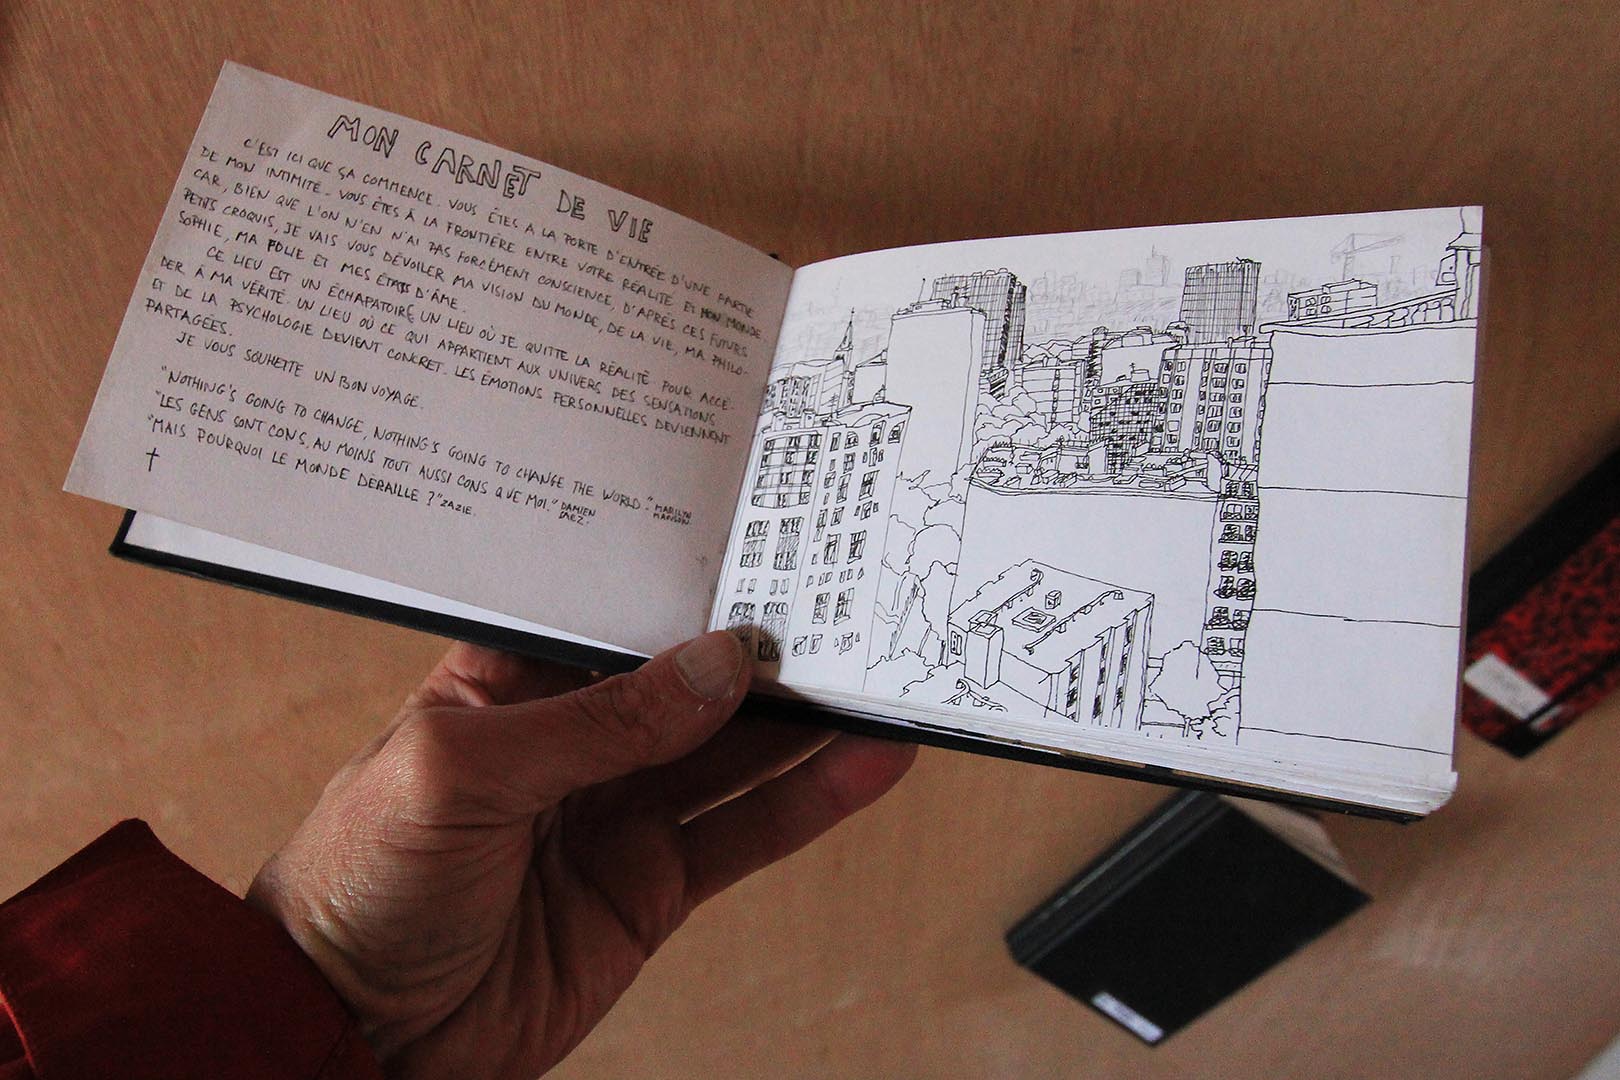 MON CARNET DE VIE
C'EST ICI QUE ÇA COMMENCE. VOUS ÊTES A LA PORTE D'ENTRÉE D'UNE PARTIE
DE MON INTIMITÉ. VOUS ÊTES À LA FRONTIÈRE ENTRE VOTRE RÉALITÉ ET MON MONDE
CAR, BIEN QUE L'ON N'EN N'AI PAS FORCÉMENT CONSCIENCE, D'APRÈS CES FUTURS
PETITS CROQUIS, JE VAIS VOUS DÉVOILER MA VISION DU MONDE, DE LA VIE, MA PHILO-
SOPHIE, MA FOLIE ET MES ÉTATS D'ÂME.
CE LIEU EST UN ÉCHAPATOIRE, UN LIEU OÙ JE QUITTE LA RÉALITÉ POUR ACCÉ-
DER À MA VÉRITÉ. UN LIEU OÙ CE QUI APPARTIENT AUX UNIVERS DES SENSATIONS
ET DE LA PSYCHOLOGIE DEVIENT CONCRET. LES ÉMOTIONS PERSONNELLES DEVIENNENT
PARTAGÉES.
JE VOUS SOUHETTE UN BON VOYAGE.
"NOTHING'S GOING TO CHANGE, NOTHING'S GOING TO CHANGE THE WORLD." MARILYN MANSON.
"LES GENS SONT CONS, AU MOINS TOUT AUSSI CONS QUE MOI." DAMIEN SAEZ.
"MAIS POURQUOI LE MONDE DÉRAILLE ?" ZAZIE.